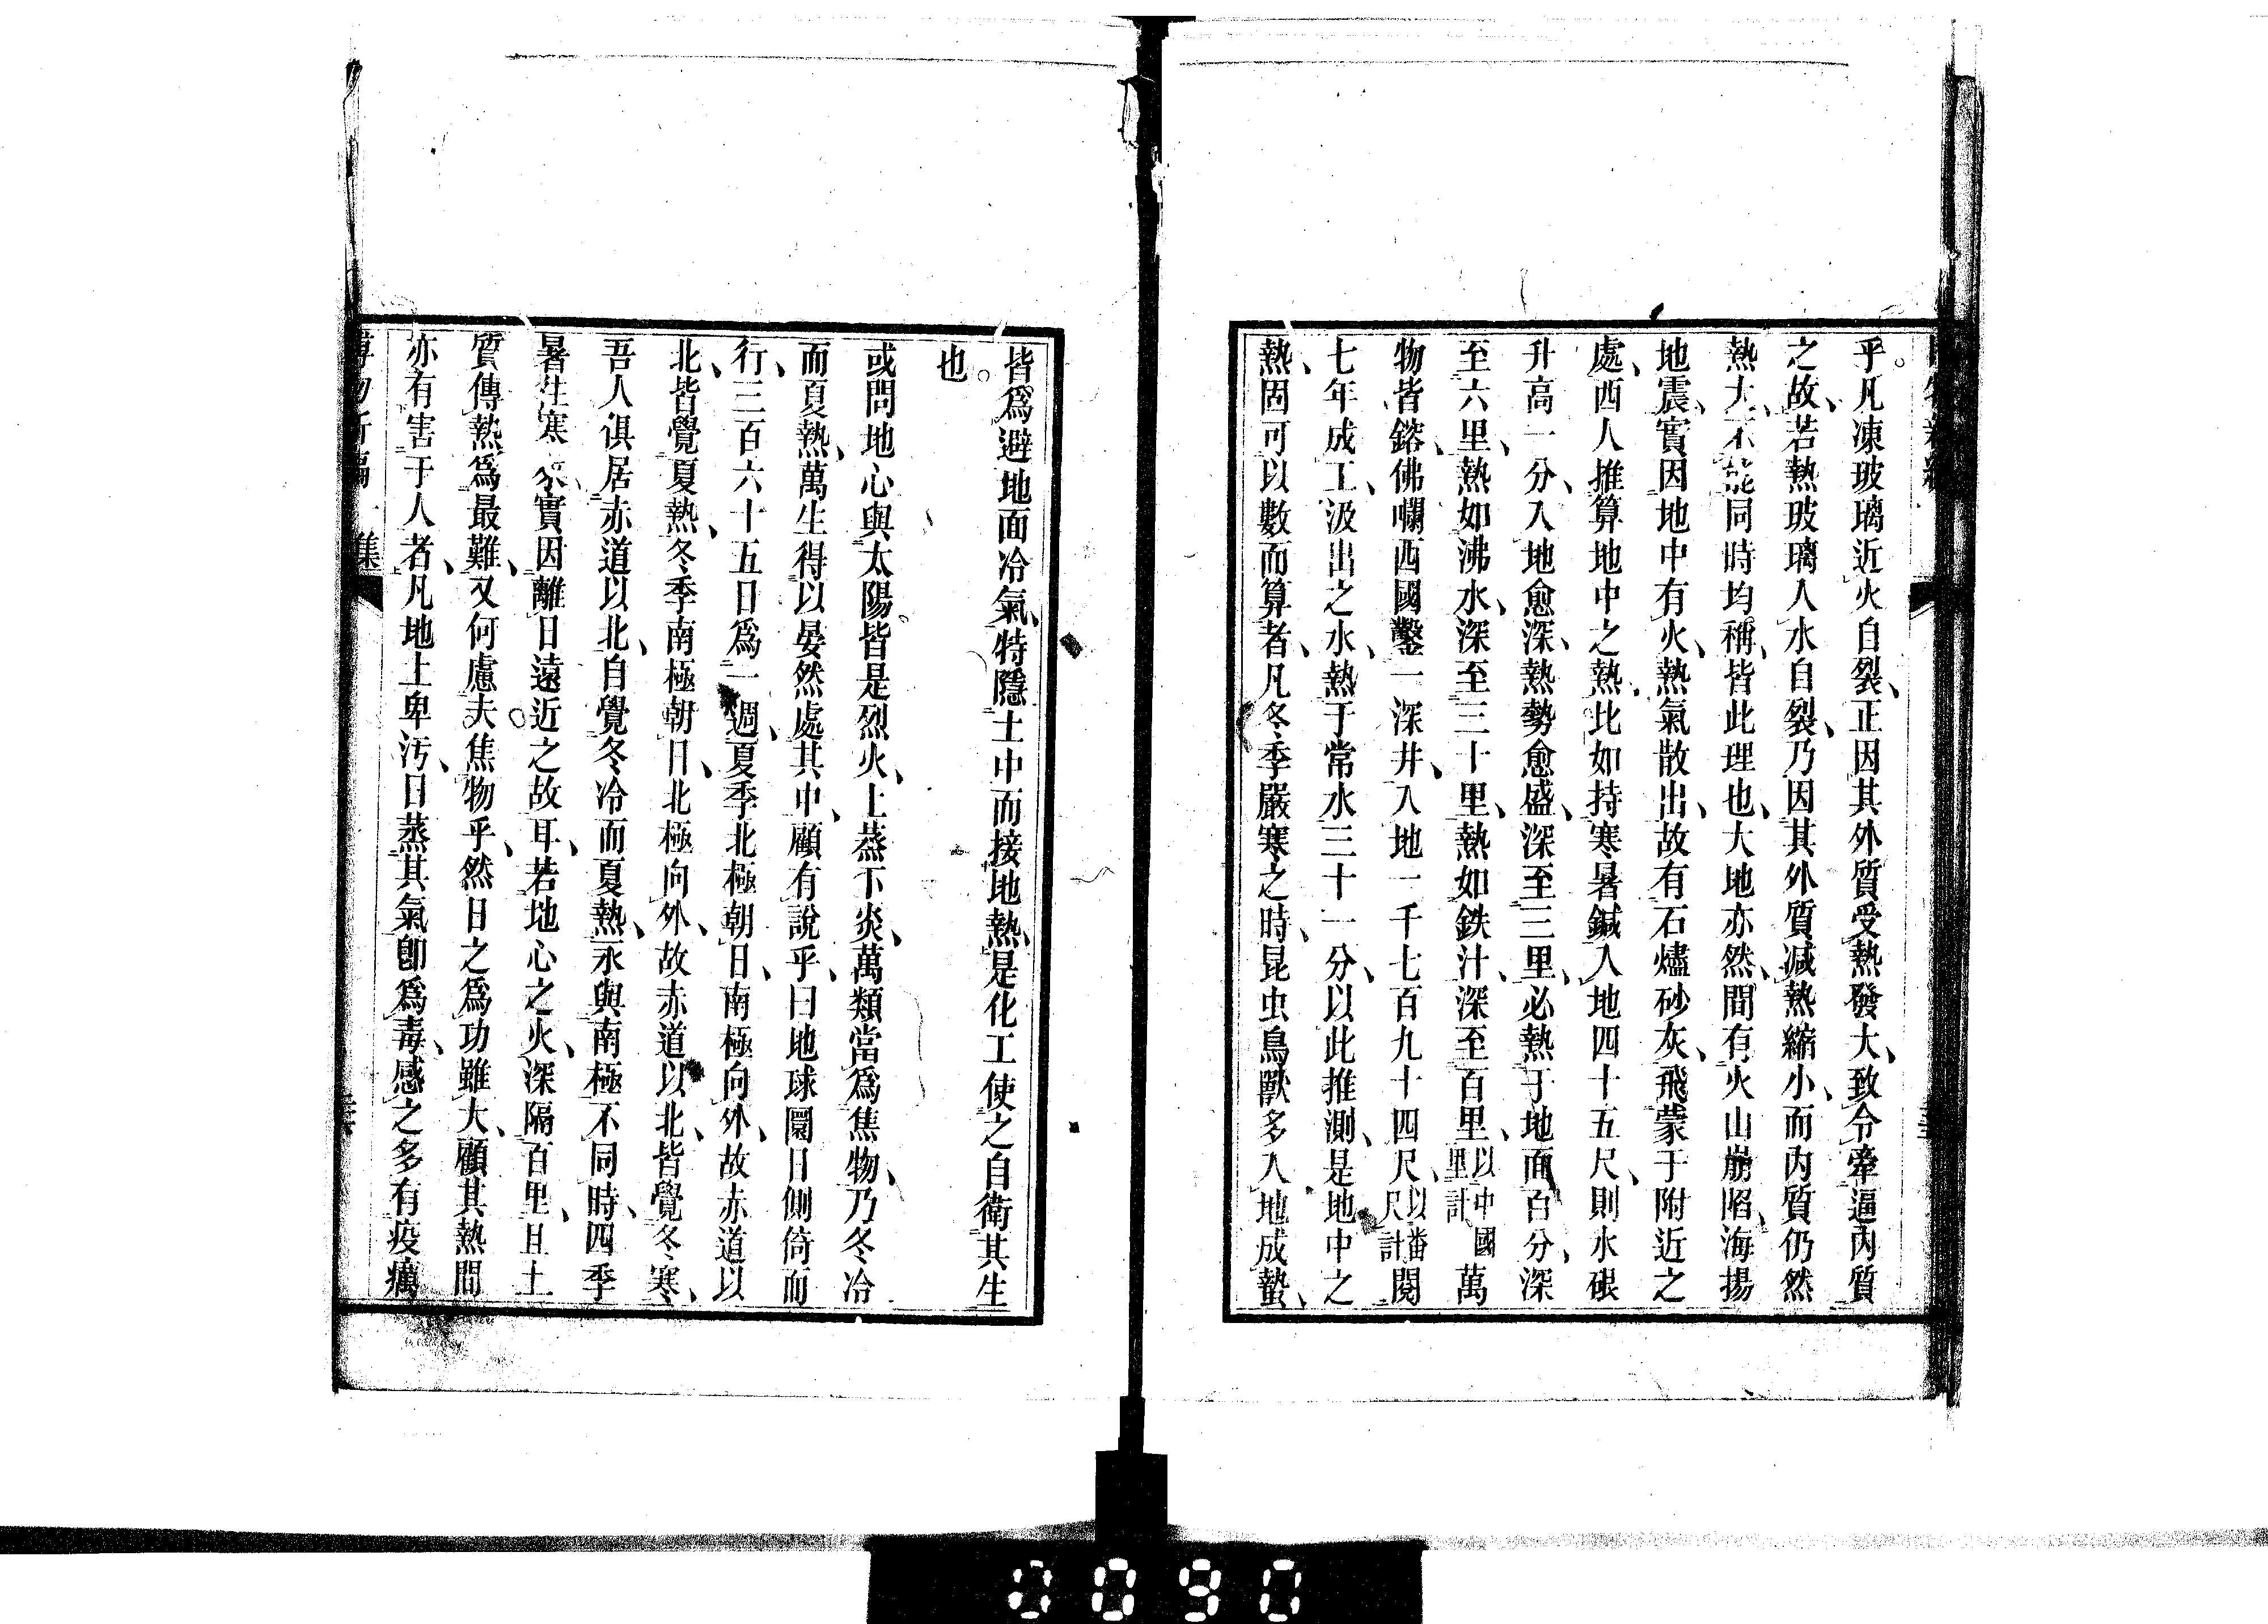 乎。凡凍玻璃近火自裂、正因其外質受熱發大、致令牽逼內質
之故、若熱玻璃入水自裂、乃因其外質减熱縮小、而內質仍然
熱大、不能同時均稱、皆此理也、大地亦然、間有火山崩陷、海揚
地震、實因地中有火、熱氣散出、故有石燼砂灰、飛蒙于附近之
處、西人推算地中之熱、比如持寒暑鍼入地四十五尺、則水銀
升高一分、入地愈深、熱勢愈盛、深至三里、必熱于地面百分、深
至六里、熱如沸水、深至三十里、熱如鉄汁、深至百里、以中國里計萬
物皆鎔、佛囒西國鑿一深井、入地一千七百九十四尺、以畨尺計閱
七年成工、汲出之水、熱于常水三十一分、以此推測、是地中之
熱、固可以數而算者、凡冬季嚴寒之時、昆虫鳥獸多入地成蟄、
皆爲避地面冷氣、特隱土中而接地熱、是化工使之自衛其生
也。
或問地心與太陽。皆是烈火、上蒸下炎、萬類當爲焦物、乃冬冷
而夏熱、萬生得以晏然處其中、顧有說乎、曰地球圜日側倚而
行、三百六十五日爲一週、夏季北極朝日、南極向外、故赤道以
北、皆覺夏熱、冬季南極朝日、北極向外、故赤道以北、皆覺冬寒、
吾人俱居赤道以北、自覺冬冷而夏熱、永與南極不同時、四季
暑往寒來、實因離日遠近之故耳、若地心之火、深隔百里、且土
質傳熱、爲最難、又何慮夫焦物乎、然日之爲功雖大、顧其熱間
亦有害于人者、凡地上卑汚、日蒸其氣卽爲毒、感之多有疫癘
博物新編 一集